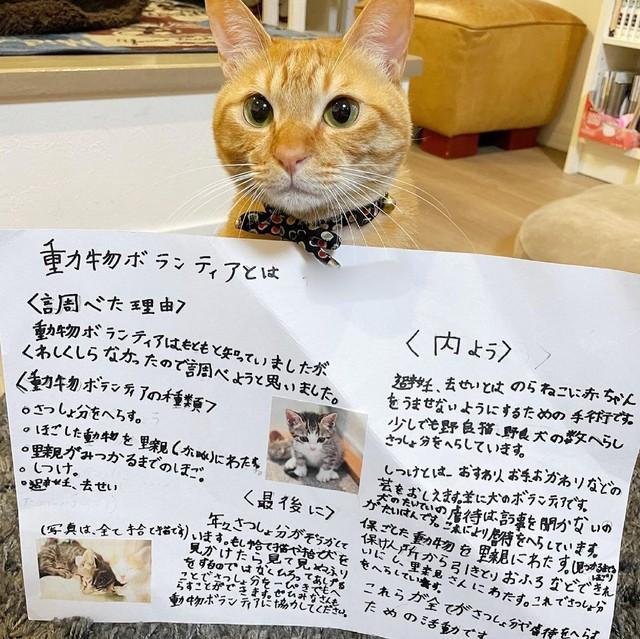 動物ボランティアとは
〈調べた理由〉
動物ボランティアはもともと知っていましたが
くわしくしらなかったので調べようと思いました。
〈動物ボランティアの種類〉
○さっしょ分をへらす。
○ほごした動物を里親(かぬし)にわたす。
○里親がみつかるまでのほご。
○しつけ。
○避妊、去せい
(写真は、全て捨て猫です)
〈最後に〉
年々さっしょ分がそうなって
います。もし捨て猫や捨て犬を
見かけたら見て見ぬふり
をするのではなくひろってあげる
ことでさっしょ分を
らすことができます。ぜひみなさん
動物ボランティアに協力してください。
〈内よう〉
避妊、去せいとはのらねこに赤ちゃん
をうませないようにするための手術です。
少しでも野良猫、野良犬の数へらし
さっしょ分をへらしています。
しつけとは、おすわり、お手、おかわりなどの
芸をおしえます。主に犬のボランティアです。
犬のたいていの虐待は言う事を聞かないの
がだいはんです。これにより虐待をへらしています。
保ごとした動物を里親にわたす。
保けん所から引きとりおふろなどできれ
いにし、里親さんにわたす。これでさっしょ分
をへらしています。
これらが全てがさっしょ分や虐待をへらす
ための活動です